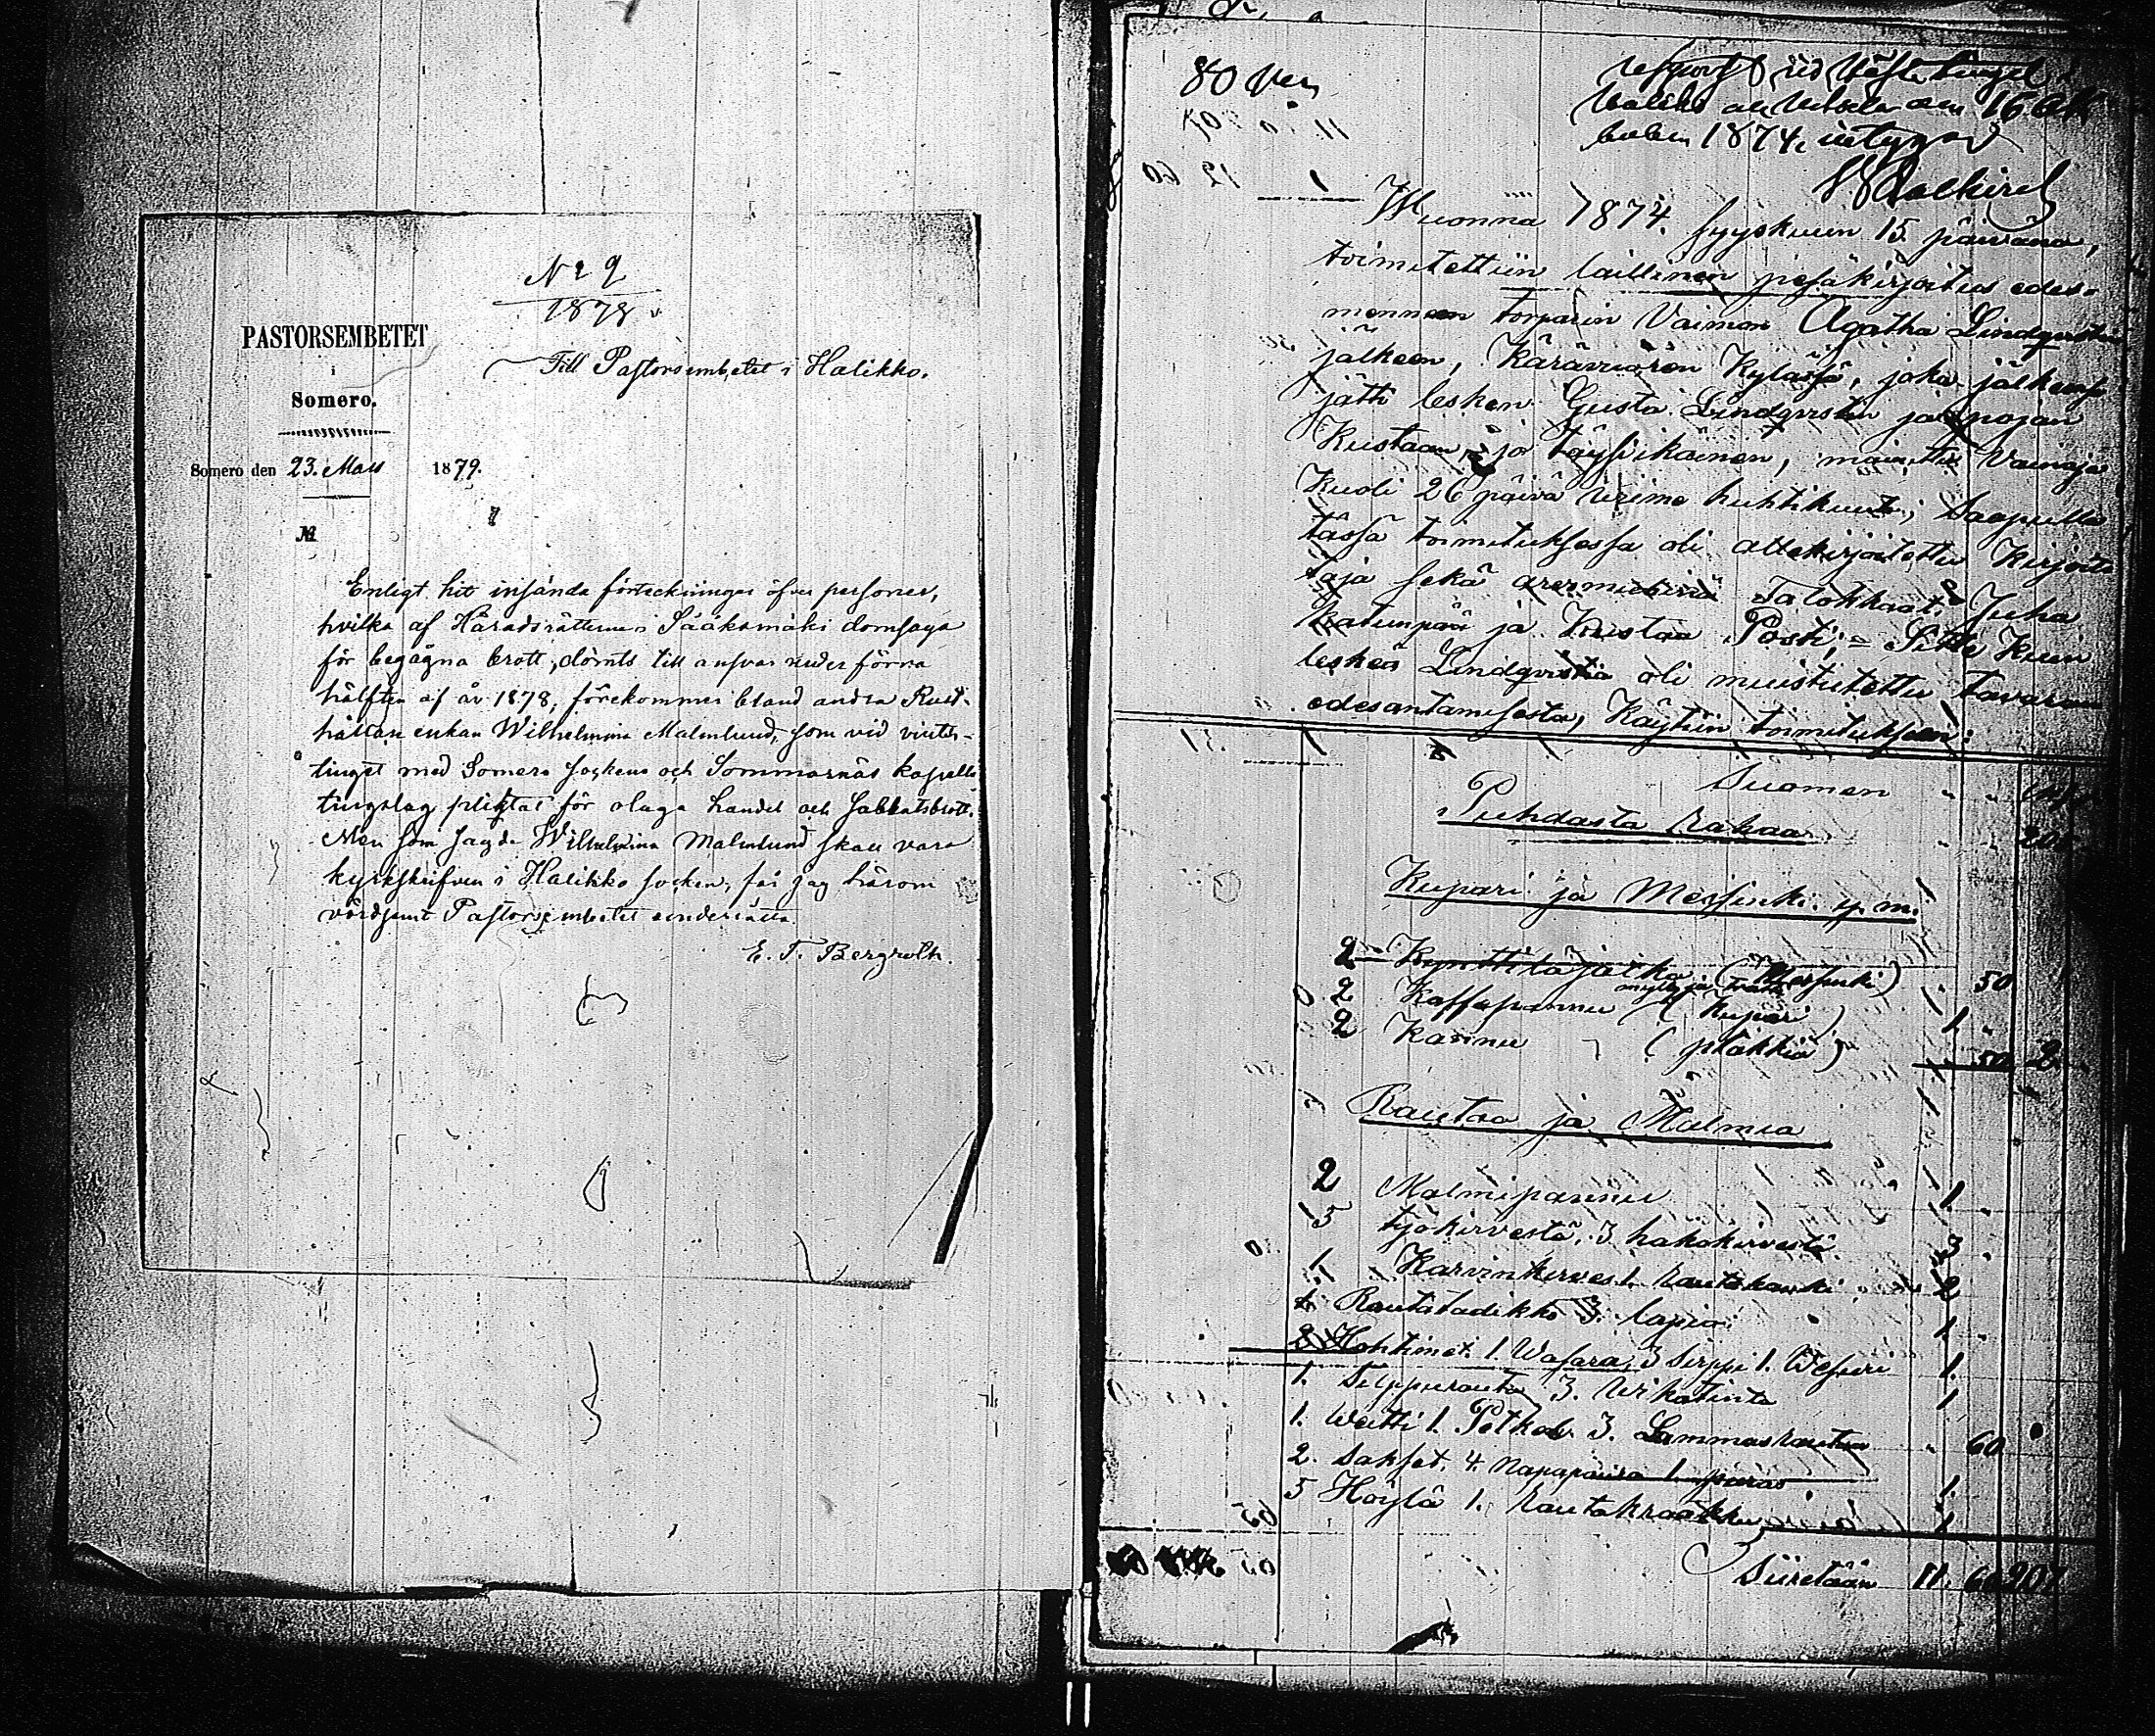 N:o 9
1878
PASTORSEMBETET
i
Somero.
Till Pastorsembetet i Halikko.
Somero den 23. Mars 1879.
№
Enligt hit insända förteckningar öfver personer,
hvilka af Häradsrätterna i Sääksmäki domsaga
för begågna brott, dömts till ansvar under förra
hälften af år 1878, förekommer bland andra Rust-
hållar enkan Wilhelmina Malmlund, som vid vinter-
tinget med Somero sockens och Sommarnäs kapells
tingslag pliktat för olaga handel och sabbatsbrott.
Men som sagde Wilhelmina Malmlund skall vara
kyrkskrifven i Halikko socken, får jag härom
vördsamt Pastorsembetet underrätta.
E. T. Bergroth.
80 Pen
uid Höste tinget i
am 16 Ok
1874, intygar
Wuonna 1874. syyskuun 15 päiwänä,
toimitettiin laillinen pesäkirjoitus edes-
mennen torparin Vaimon Agatha Lindqvistin
jälkeen, Kärävuoren Kylässä, joka jälkeensä
jätti lesken Gusta Lindqvistin ja pojan
Kustaan, jo täysikäinen, mainittu Vainaja
Kuoli 26 päivä viime huhtikuuta; Saapuilla
tässä toimituksessa oli allekirjoitettu Kirjoit-
taja sekä arvomiehinä Talokkaat Juha
ja Kustaa Posti; = Sitte Kuin
leskeä Lindqvistiä oli muistutettu tavaran
edesantamisesta, Käytiin toimitukseen:
Suomen
Puhdasta Rahaa 20
Kupari ja Messinki y. m.
2 Kynttiläjalka (Messinki) 50
2 Kaffepannu (Kupari) 1
2 Kannu (pläkkiä) 50 2
Rautaa ja Mulmia
2 Malmipannu 1.
5 työkirvestä, 3 hakokirvestä 3
1 Karvinkirves 1. Rautakanki 2
Rautatadikko 3. lapio 1
2 Hohtimet. 1. Wasara, 3 Sirppi 1. Wesuri 1.
1. Silppurauta, 3. Wikatinta 1
1. Weitti 1. Petkel. 3. Lammasrautaa 60
2. Sakset. 4. Napapaira 1. paras 1.
5 Höylä 1. Rautakraakku 1
Siiretään 11. 60 207